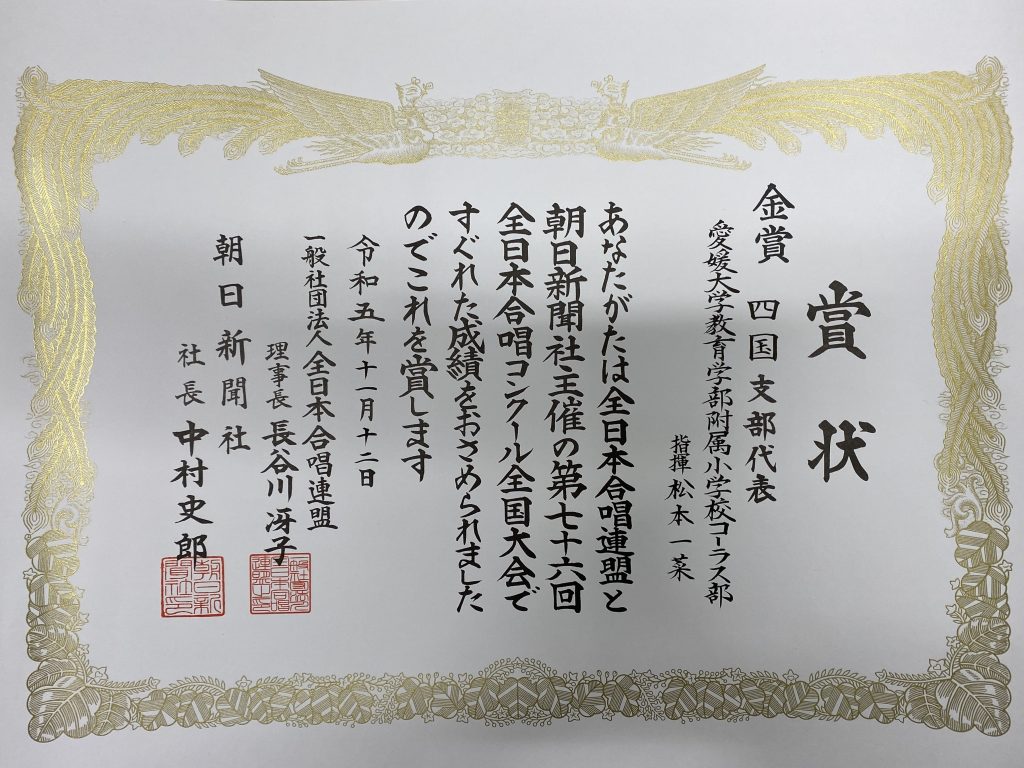 賞状
金賞 四国支部代表
愛媛大学教育学部附属小学校コーラス部
指揮 松本一菜
あなたがたは全日本合唱連盟と
朝日新聞社主催の第七十六回
全日本合唱コンクール全国大会で
すぐれた成績をおさめられました
のでこれを賞します
令和五年十一月十二日
一般社団法人全日本合唱連盟
理事長 長谷川冴子
朝日新聞社
社長 中村史郎